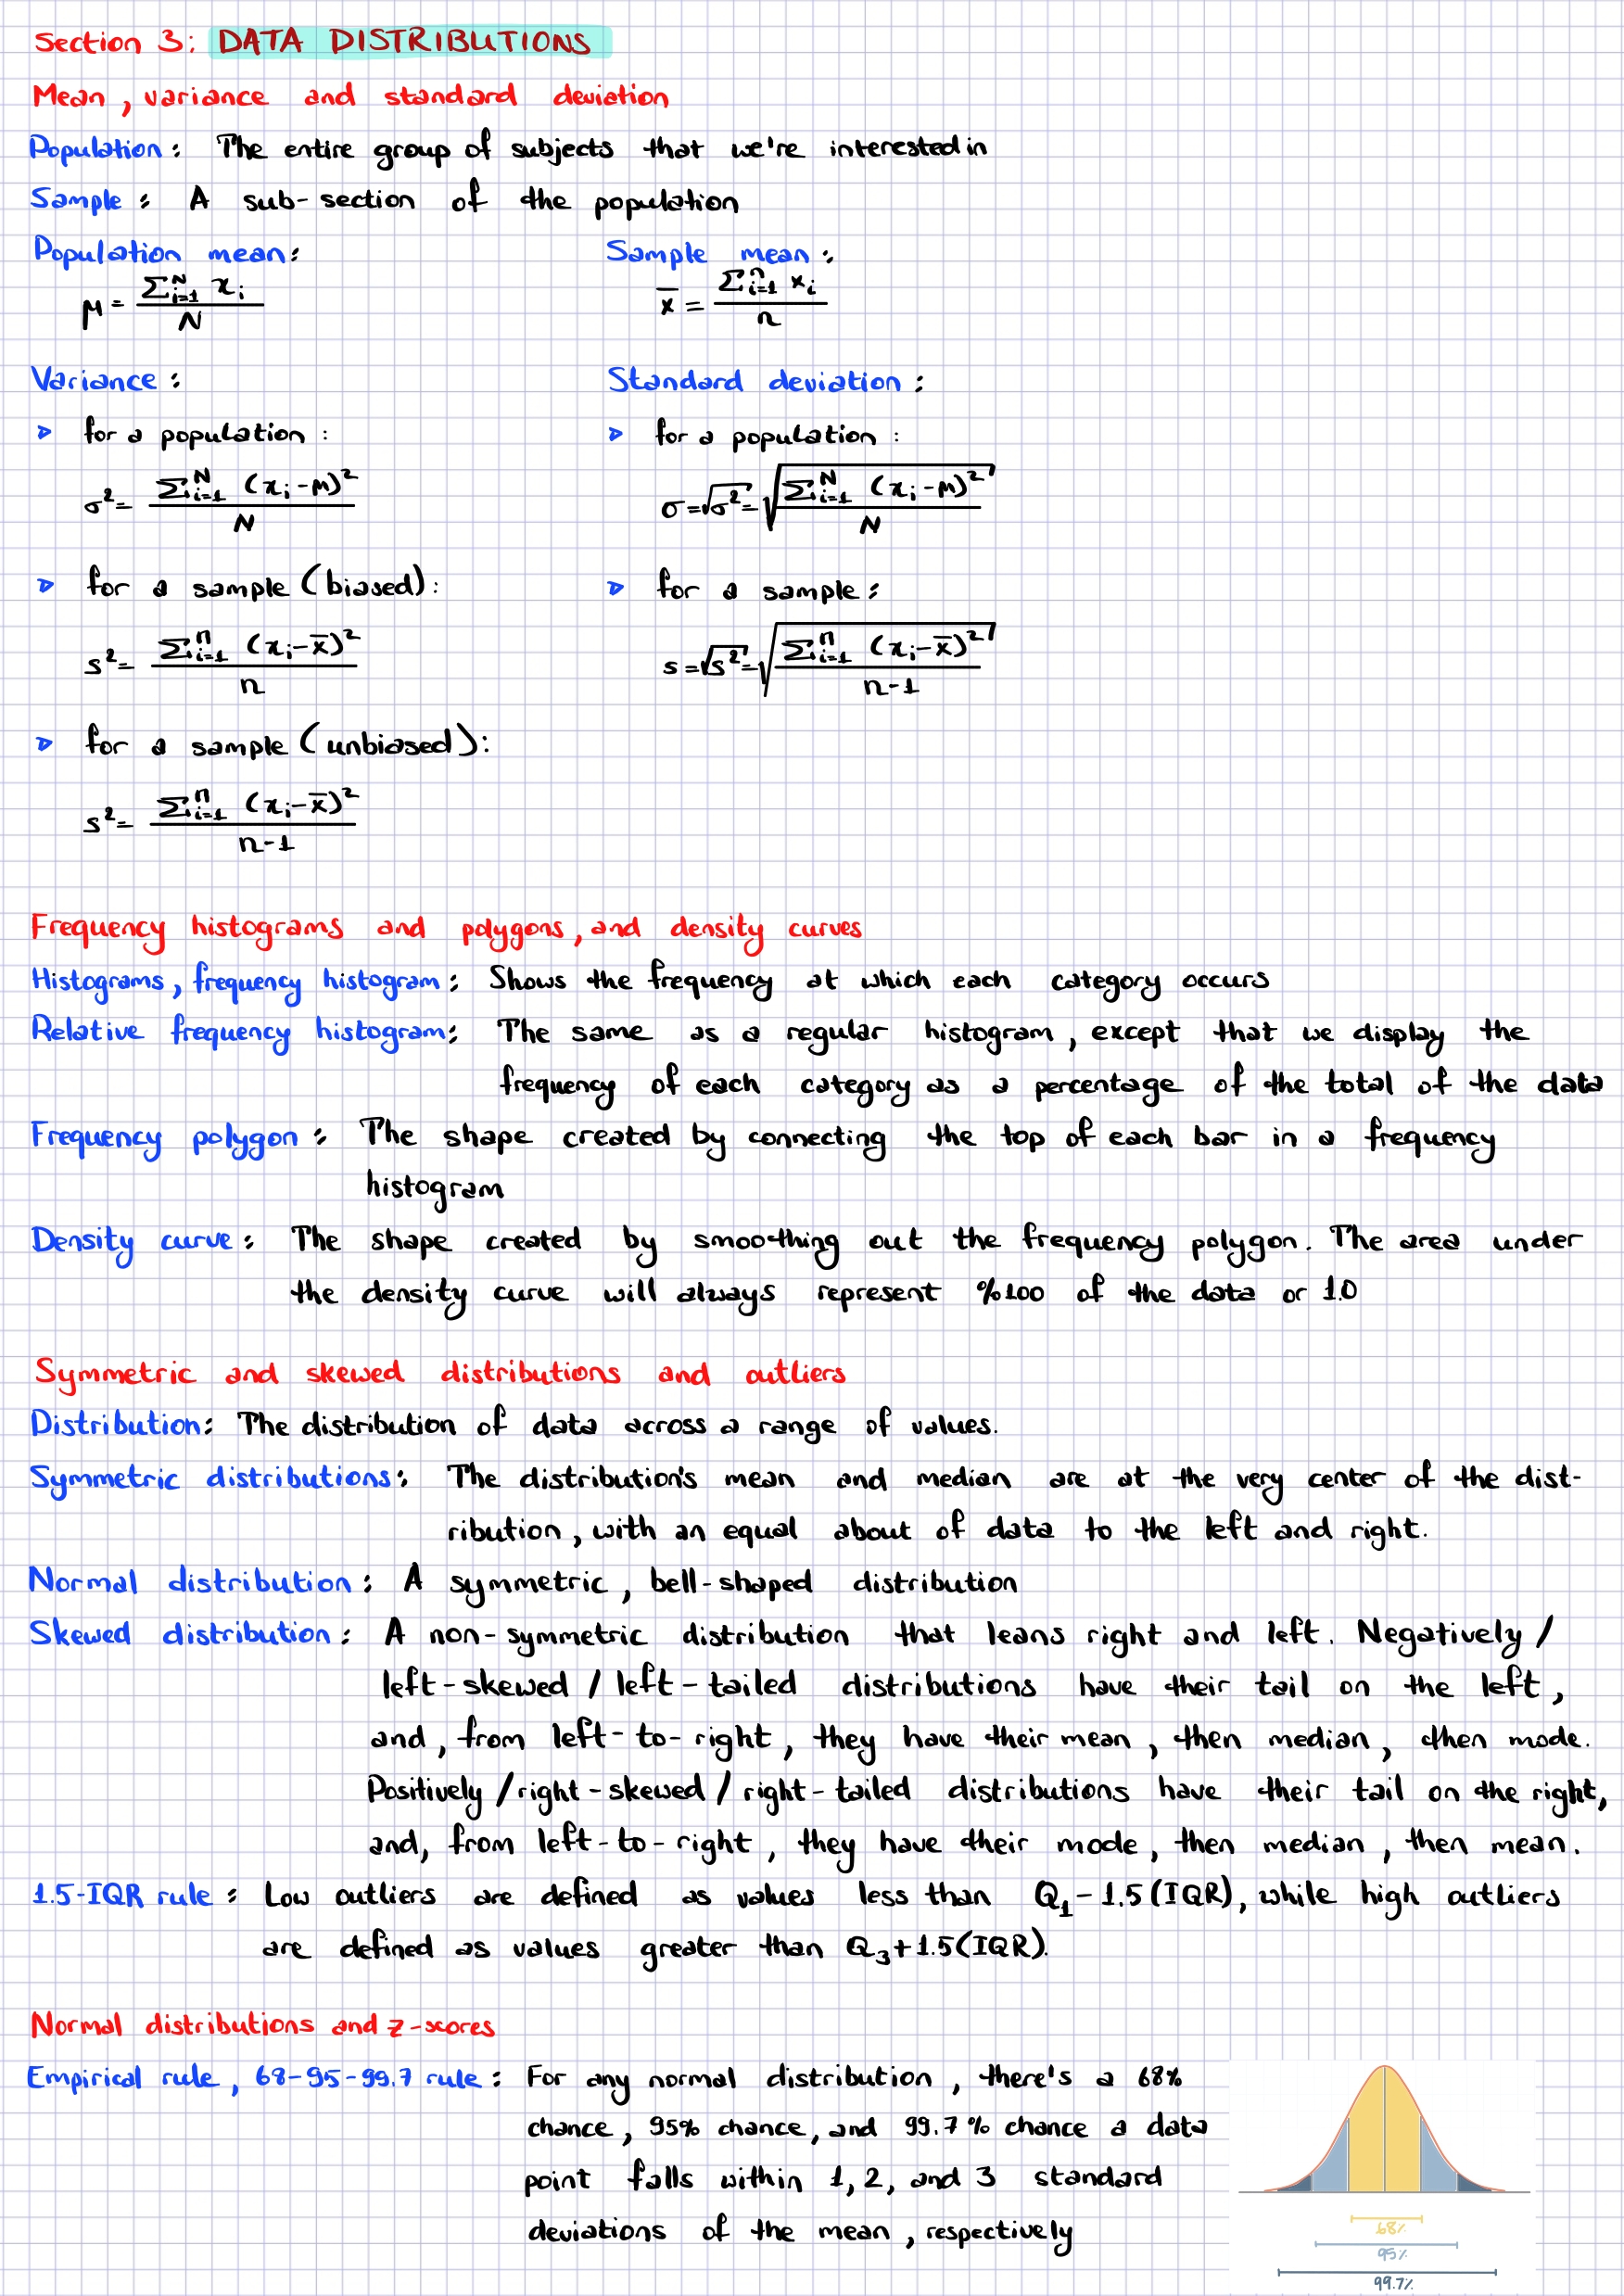 Section 3: DATA DISTRIBUTIONS
Mean, variance and standard deviation
Population: The entire group of subjects that we're interested in
Sample: A sub-section of the population
Population mean: Sample mean:
μ = \frac{∑_{i=1}^{N} x_i}{N} \bar{x} = \frac{∑_{i=1}^{n} x_i}{n}
Variance: Standard deviation:
▷ for a population: ▷ for a population:
σ² = \frac{∑_{i=1}^{N} (x_i-μ)²}{N} σ = √σ² = \sqrt{\frac{∑_{i=1}^{N} (x_i-μ)²}{N}}
▷ for a sample (biased): ▷ for a sample:
s² = \frac{∑_{i=1}^{n} (x_i-\bar{x})²}{n} s = √s² = \sqrt{\frac{∑_{i=1}^{n} (x_i-\bar{x})²}{n-1}}
▷ for a sample (unbiased):
s² = \frac{∑_{i=1}^{n} (x_i-\bar{x})²}{n-1}
Frequency histograms and polygons, and density curves
Histograms, frequency histogram: Shows the frequency at which each category occurs
Relative frequency histogram: The same as a regular histogram, except that we display the
frequency of each category as a percentage of the total of the data
Frequency polygon: The shape created by connecting the top of each bar in a frequency
histogram
Density curve: The shape created by smoothing out the frequency polygon. The area under
the density curve will always represent %100 of the data or 1.0
Symmetric and skewed distributions and outliers
Distribution: The distribution of data across a range of values.
Symmetric distributions: The distribution's mean and median are at the very center of the dist-
ribution, with an equal about of data to the left and right.
Normal distribution: A symmetric, bell-shaped distribution
Skewed distribution: A non-symmetric distribution that leans right and left. Negatively /
left-skewed / left-tailed distributions have their tail on the left,
and, from left-to-right, they have their mean, then median, then mode.
Positively / right-skewed / right-tailed distributions have their tail on the right,
and, from left-to-right, they have their mode, then median, then mean.
1.5-IQR rule: Low outliers are defined as values less than Q₁ - 1.5(IQR), while high outliers
are defined as values greater than Q₃+1.5(IQR).
Normal distributions and z-scores
Empirical rule, 68-95-99.7 rule: For any normal distribution, there's a 68%
chance, 95% chance, and 99.7% chance a data
point falls within 1, 2, and 3 standard
deviations of the mean, respectively
68%
95%
99.7%